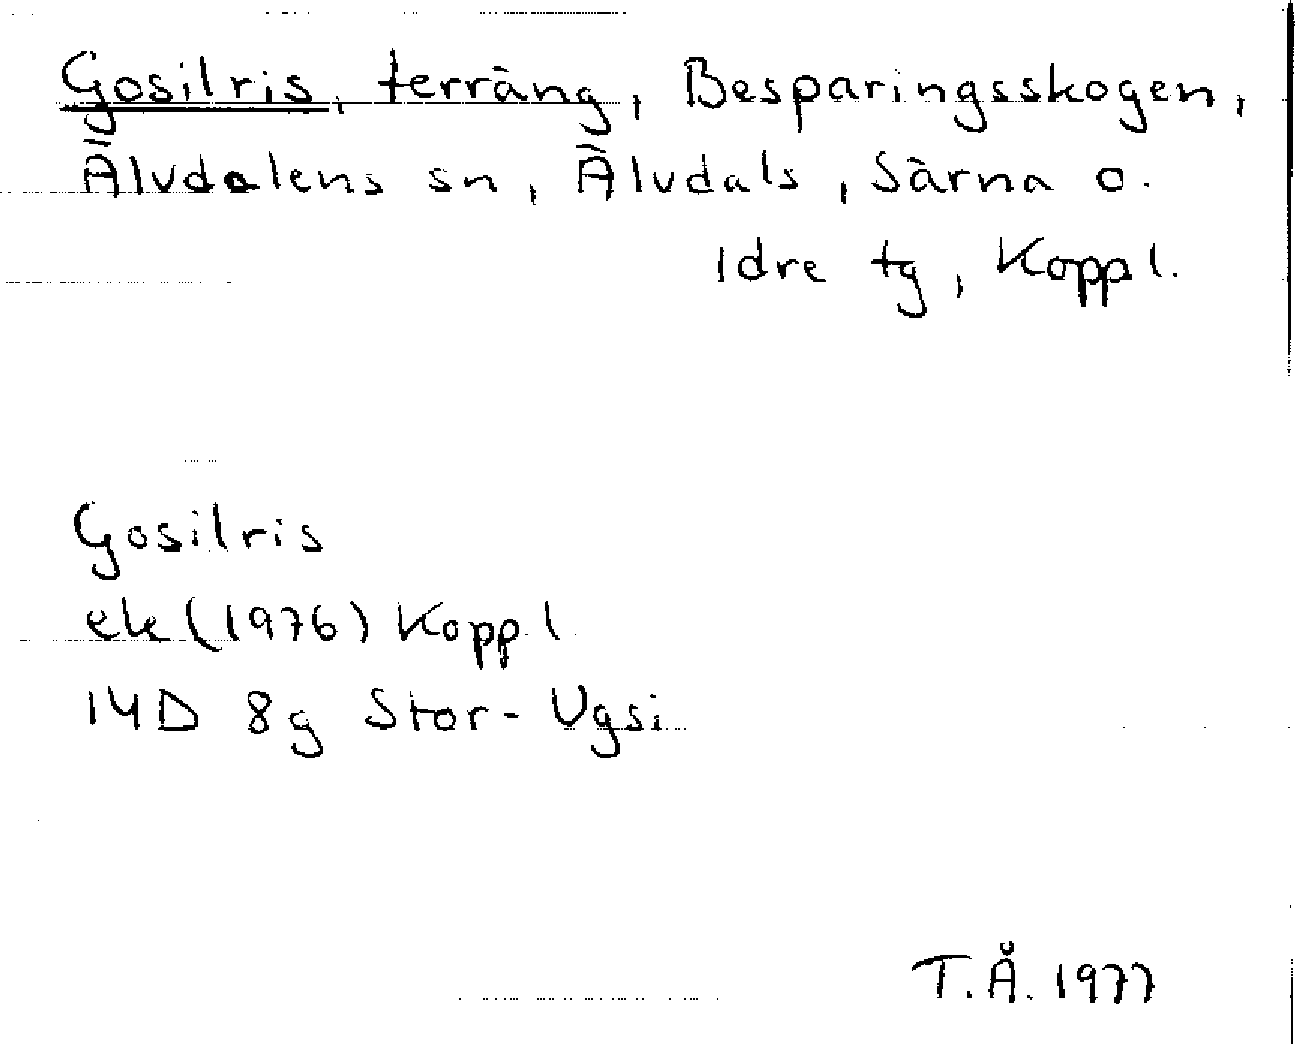 Gosilris, terräng, Besparingsskogen,
Älvdalens sn, Älvdals, Särna o.
Idre tg, Koppl.
Gosilris
ek (1976) Koppl
14D 8g Stor-Ugsi
T.Å. 1977